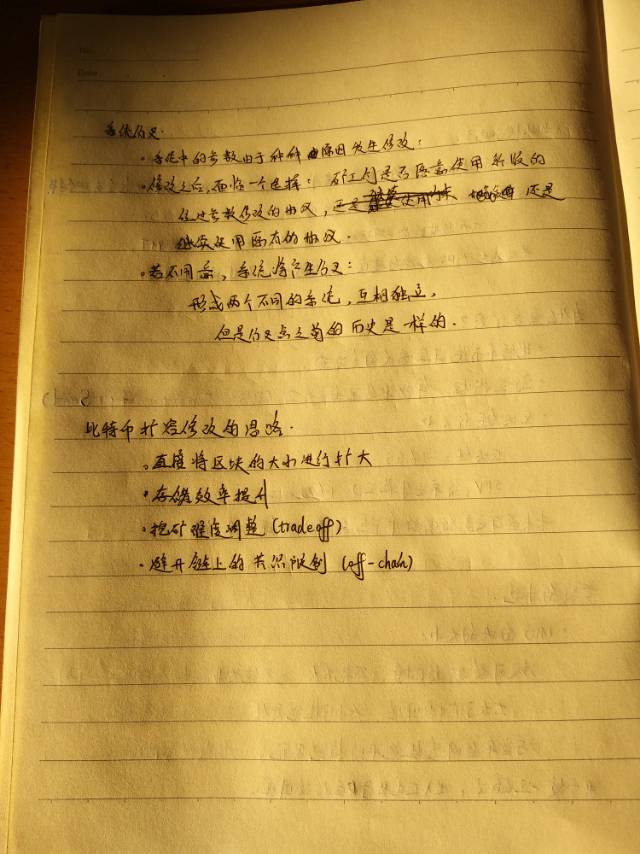 系统分叉.
· 系统中的参数由于种种原因发生修改:
· 修改之后,面临一个选择: 矿工们是否愿意使用新版的
经过参数修改的协议, 还是
继续使用原有的协议.
· 若不同意, 系统将产生分叉:
形成两个不同的系统, 互相独立,
但是分叉点之前的历史是一样的.
比特币扩容修改的思路.
· 直接将区块的大小进行扩大
· 存储效率提升
· 挖矿难度调整 (tradeoff)
· 避开链上的共识限制 (off-chain)